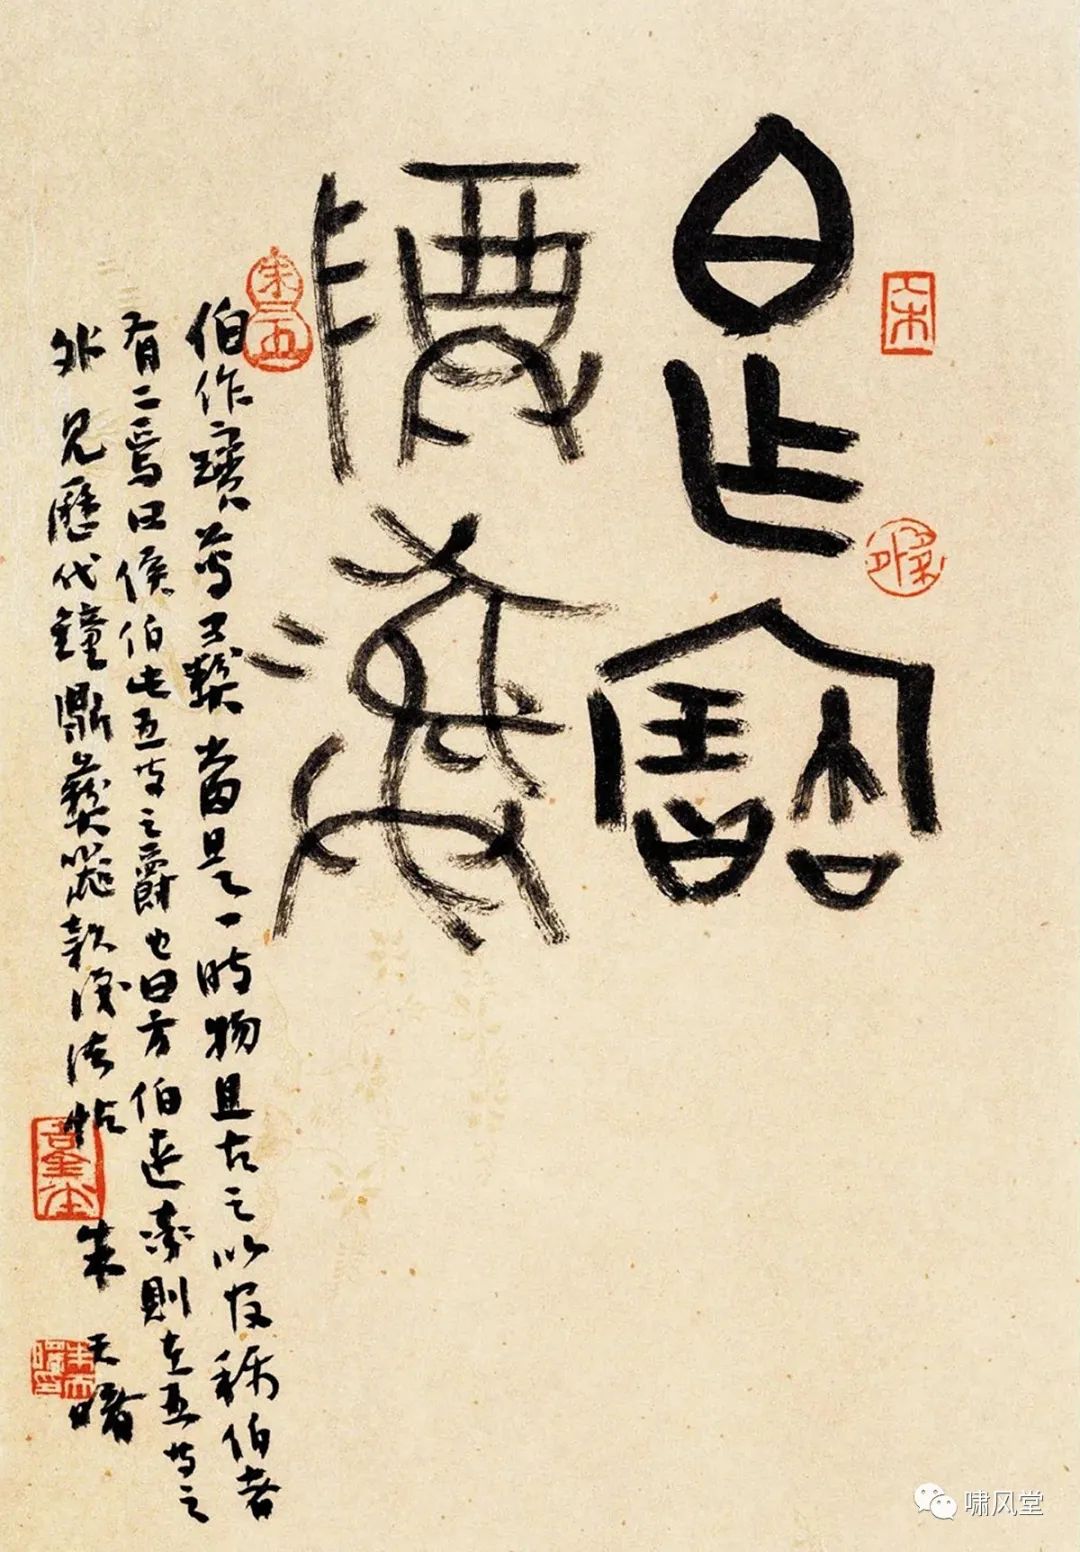 白作
寶
尊彝
伯作寶尊彝二器當是一時物且古之以伯稱伯者
有二焉曰侯伯此五等之爵也曰方伯連率則在五等之
外 見歷代鐘鼎彝器款識法帖
朱天曙
啸风堂